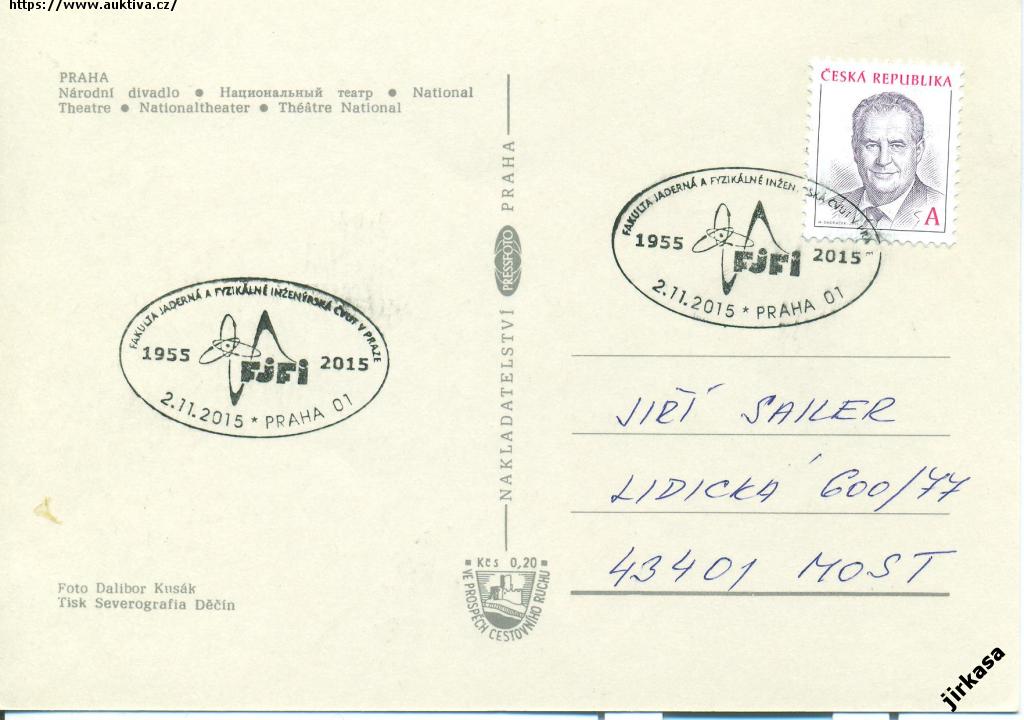 https://www.auktiva.cz/
PRAHA
Národní divadlo ● Национальный театр ● National
Theatre ● Nationaltheater ● Théâtre National
ČESKÁ REPUBLIKA
A
FAKULTA JADERNÁ A FYZIKÁLNĚ INŽENÝRSKÁ ČVUT V PRAZE
1955 FJFI 2015
2.11.2015 * PRAHA 01
FAKULTA JADERNÁ A FYZIKÁLNĚ INŽENÝRSKÁ ČVUT V PRAZE
1955 FJFI 2015
2.11.2015 * PRAHA 01
NAKLADATELSTVÍ PRESSFOTO PRAHA
JIŘÍ SAILER
LIDICKÁ 600/77
43401 MOST
Foto Dalibor Kusák
Tisk Severografia Děčín
Kčs 0,20
VE PROSPĚCH CESTOVNÍHO RUCHU
jirkasa